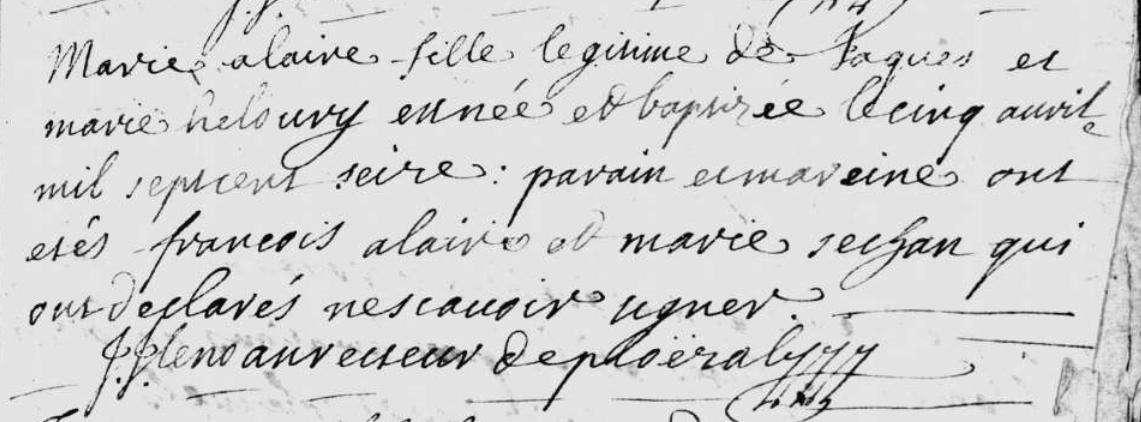 Marie alaire fille legitime de Jaques et
marie heloury est née et baptizée le cinq auvril
mil sept cent seize : parain et mareine ont
etés francois alaire et marie sechan qui
ont declarés ne scauoir signer.
recteur de ploëzal